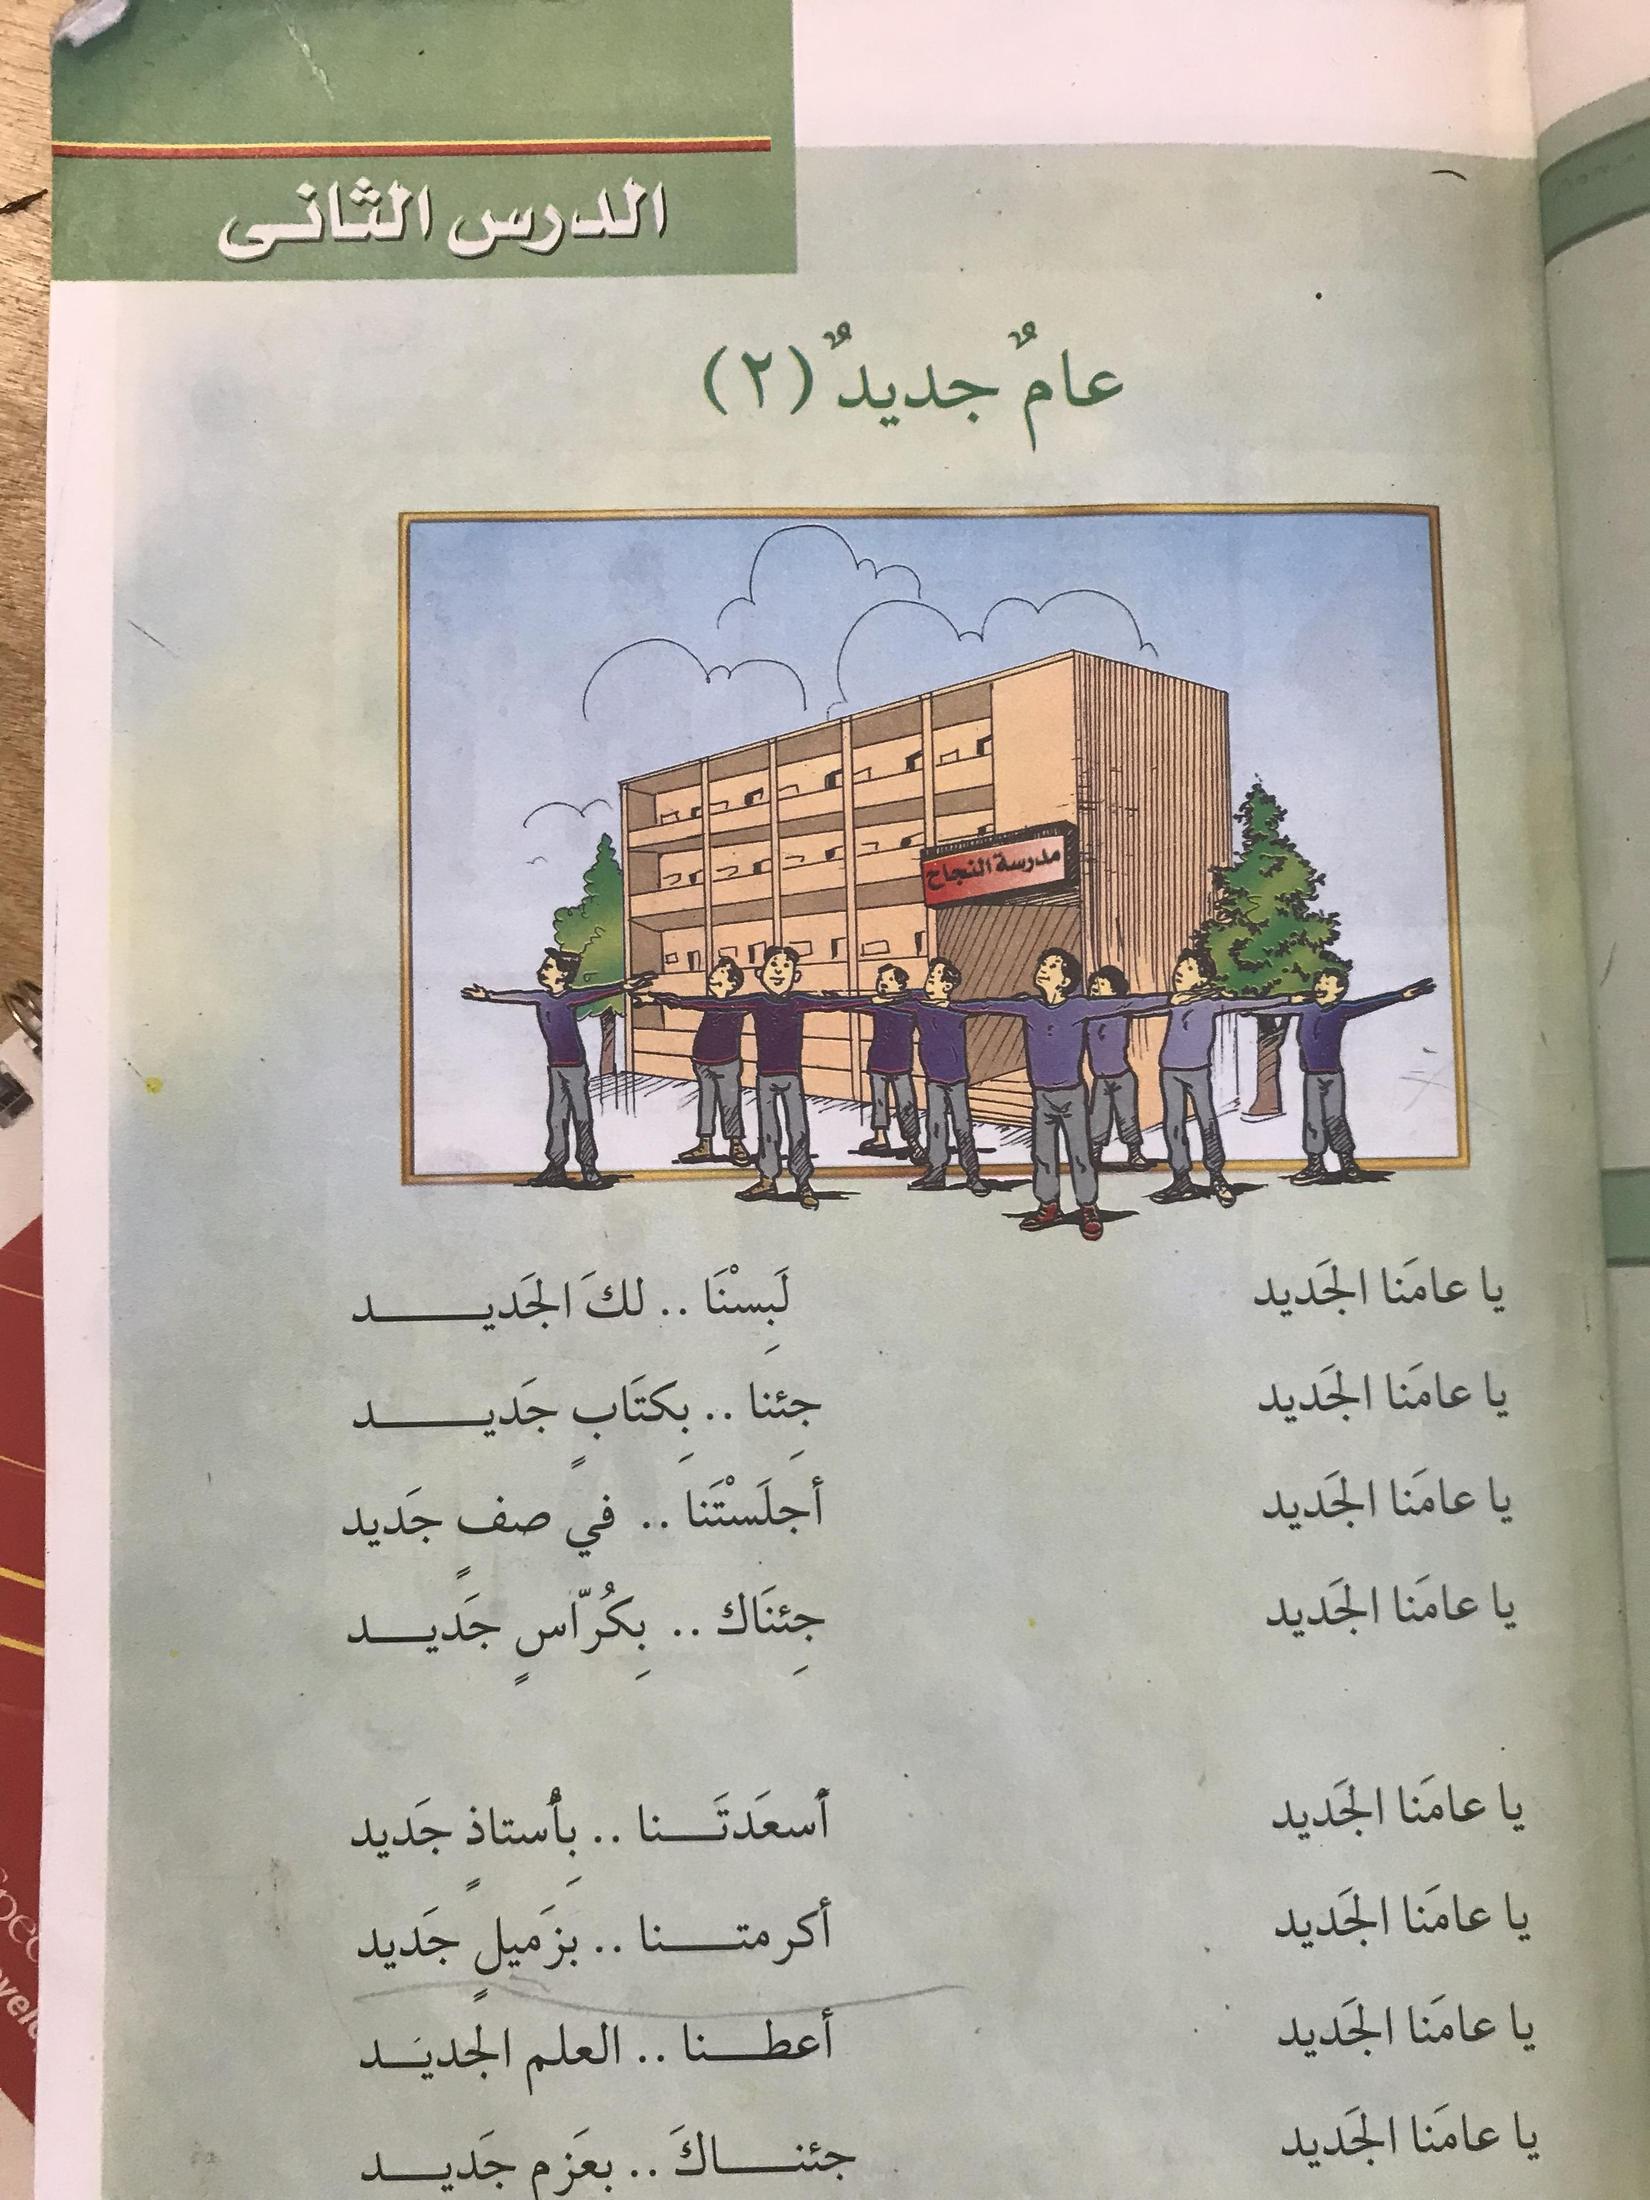 الدرس الثانى
عامٌ جديدٌ (٢)
مدرسة النجاح
يا عامَنا الجَديد لَبِسْنَا .. لكَ الجَديـــــد
يا عامَنا الجَديد جِئنا .. بِكتَابٍ جَديـــــد
يا عامَنا الجَديد أجلَسْتَنا .. في صفٍ جَديد
يا عامَنا الجَديد جِئنَاك .. بِكُرّاسٍ جَديـــد
يا عامَنا الجَديد أسعَدتَـــنا .. بِأُستاذٍ جَديد
يا عامَنا الجَديد أكرمتـــــنا .. بزَميلٍ جَديد
يا عامَنا الجَديد أعطـــنا .. العلم الجديَـــد
يا عامَنا الجَديد جئنـــــاكَ .. بعَزم جَديـــد